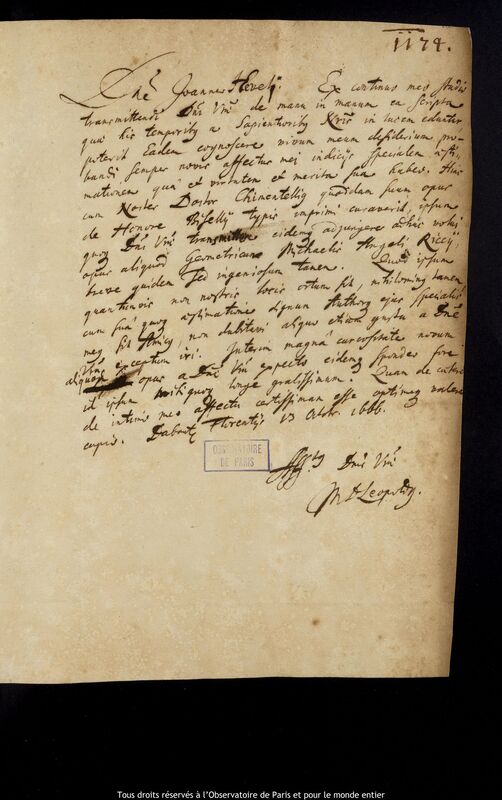 1174.
Dne Joannes Heveli. Ex continuo meo studio
transmittendi Dni Vræ de manu in manum ea scripta
quæ his temporibus a Sapientioribus Viris in lucem edantur
poterit Eadem cognoscere vivum meum desiderium pro-
bandi semper novis affectus mei indicijs specialem æsti-
mationem quam et virtutem et merita sua habeo. Hinc
cum Noster Doctor Chimentellius quoddam suum opus
de Honore Bisellij typis imprimi curaverit, ipsum
quoque Dni Vræ transmitto eidemq adjungere adhuc volui
opus aliquod Geometricum Michaelis Angeli Riccij,
breve quidem sed ingeniosum tamen. Quod ipsum
quamvis non nostris locis ortum sit, nihilominus tamen
cum sua quoque æstimatione dignum Author ejus specialis
meus sit Amicus, non dubitavi aliquo etiam gustu a Dne
Vræ exceptum iri. Interim magna curiositate novum
aliquod opus a Dne Vræ expecto eidemq spondeo fore
id ipsum mihi quoque longe gratissimum. Quam de cætero
de intimo meo affectu certissimam esse optimeq valere
cupio. Dabantur Florentiæ 13 Octobr. 1666.
OBSERVATOIRE
DE PARIS
Dnis Vræ
Leopoldus.
Tous droits réservés à l'Observatoire de Paris et pour le monde entier